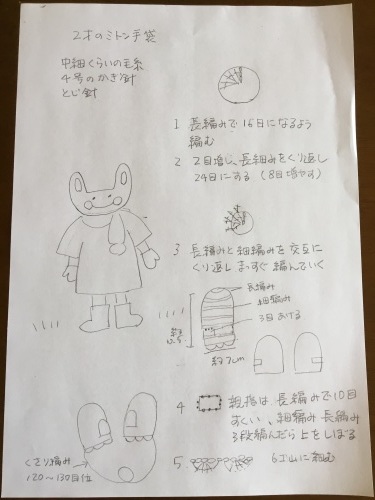 2才のミトン手袋
中細くらいの毛糸
4号のかぎ針
とじ針
1 長編みで16目になるよう
編む
2 2目増し、長編みをくり返し
24目にする (8目増やす)
3 長編みと細編みを交互に
くり返しまっすぐ編んでいく
長編み
細編み
3目あける
約7cm
4 親指は長編みで10目
すくい、細編み長編み
3段編んだら上をしぼる
くさり編み
120〜130目位
5
6ゴ山に編む